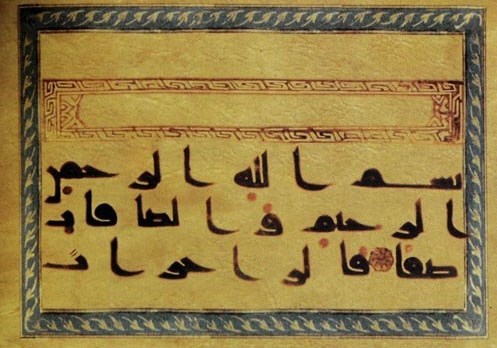 بسم الله الرحمن
الرحيم والصافات
صفا فالزاجرات